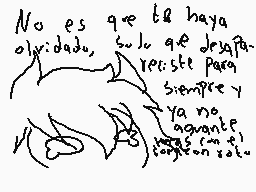 No es que te haya
olvidado, solo que desapa-
reciste para
siempre y
ya no
aguante
con el
roto